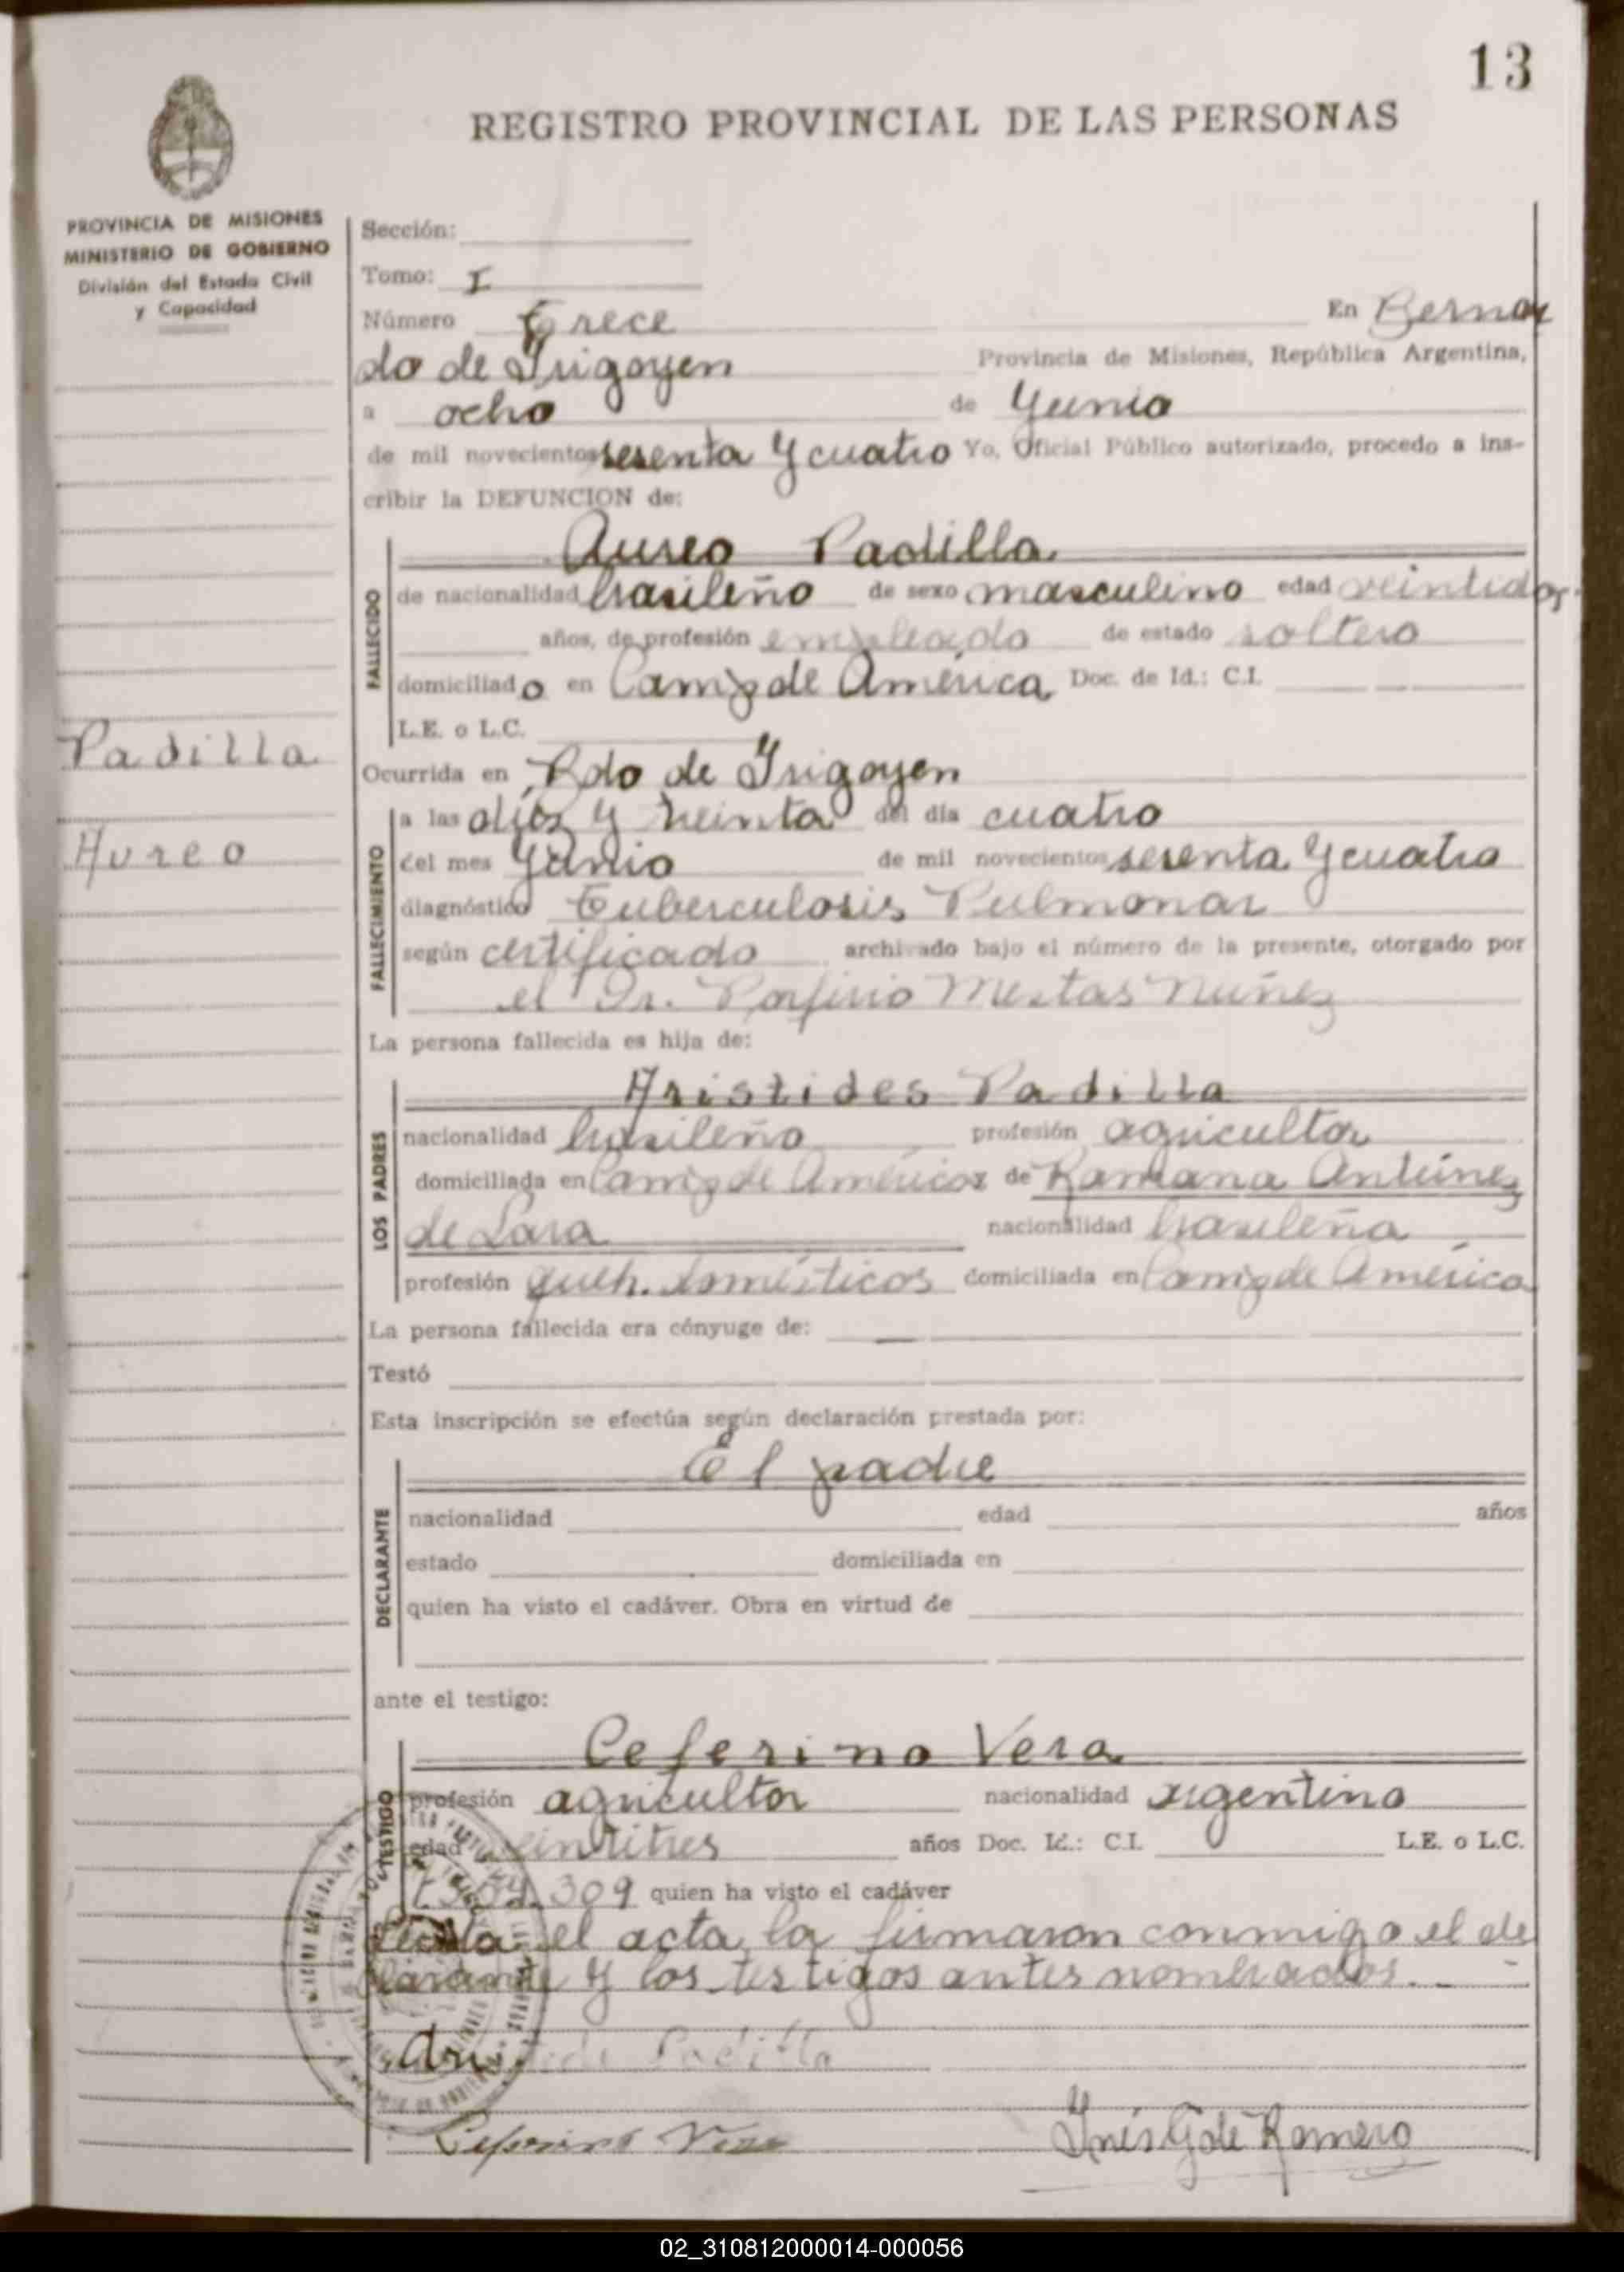 13
REGISTRO PROVINCIAL DE LAS PERSONAS
PROVINCIA DE MISIONES
MINISTERIO DE GOBIERNO
División del Estado Civil
y Capacidad
Sección:
Tomo: I
Número Trece En Bernar
do de Irigoyen Provincia de Misiones, República Argentina,
a ocho de Junio
de mil novecientos sesenta y cuatro Yo, Oficial Público autorizado, procedo a ins-
cribir la DEFUNCION de:
Aureo Padilla
FALLECIDO
de nacionalidad brasileño de sexo masculino edad veintidos
años, de profesión empleado de estado soltero
domiciliado en Camp de América Doc. de Id.: C.I.
L.E. o L.C.
Padilla
Aureo
Ocurrida en Bdo de Irigoyen
FALLECIMIENTO
a las diez y treinta del día cuatro
del mes Junio de mil novecientos sesenta y cuatro
diagnóstico Tuberculosis Pulmonar
según certificado archivado bajo el número de la presente, otorgado por
el Dr. Porfirio Mestas Nuñez
La persona fallecida es hija de:
Aristides Padilla
LOS PADRES
nacionalidad brasileño profesión agricultor
domiciliada en Camp de América de Ramana Antúnez
de Lara nacionalidad brasileña
profesión queh. domésticos domiciliada en Camp de América
La persona fallecida era cónyuge de: —
Testó
Esta inscripción se efectúa según declaración prestada por:
El padre
DECLARANTE
nacionalidad edad años
estado domiciliada en
quien ha visto el cadáver. Obra en virtud de
ante el testigo:
Ceferino Vera
TESTIGO
profesión agricultor nacionalidad argentino
edad veintitres años Doc. Id.: C.I. L.E. o L.C.
309 quien ha visto el cadáver
Leida el acta, la firmaron conmigo el de
clarante y los testigos antes nombrados.
Padilla
Ceferino Vera
Inés G de Romero
02_310812000014-000056